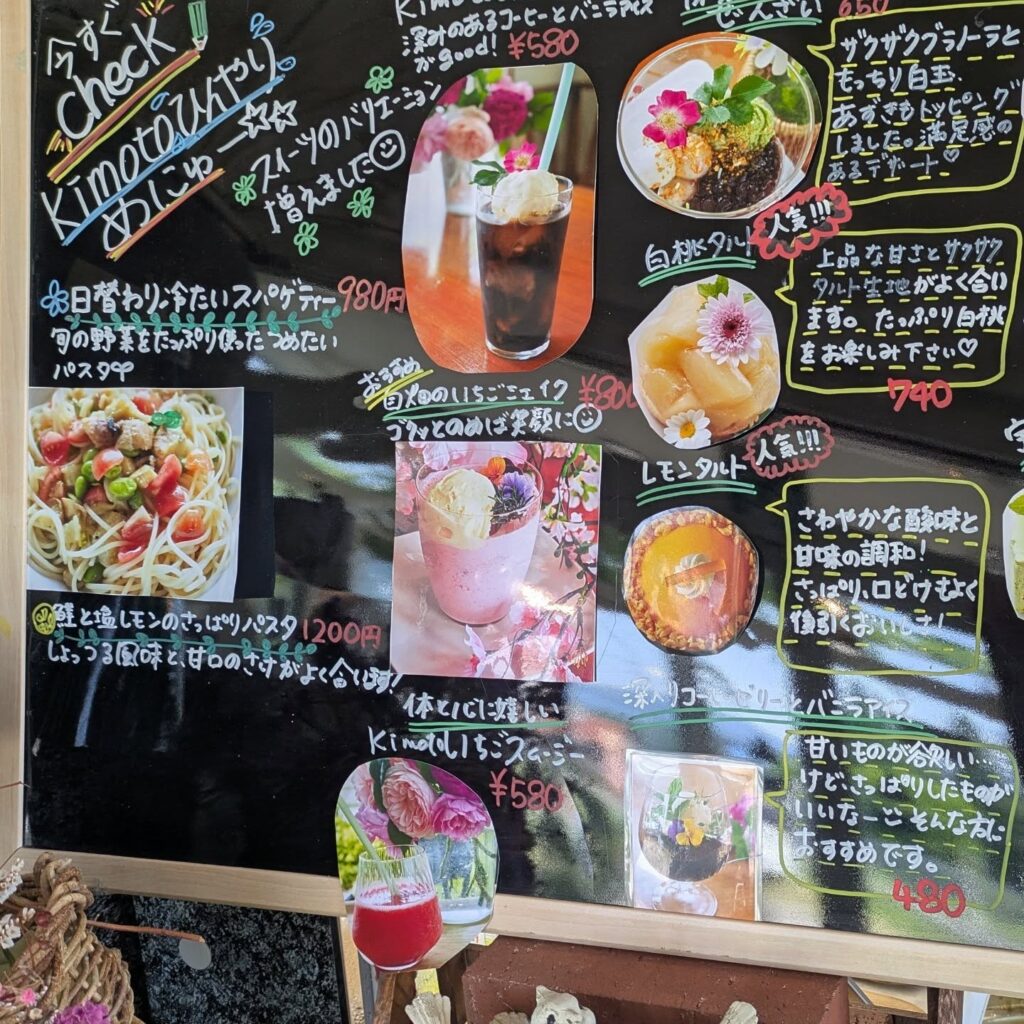 今すぐ
check
Kimotoひんやり
めにゅー☆☆
スイーツのバリエーション
増えました
日替わり冷たいスパゲティー 980円
旬の野菜をたっぷり使ったつめたい
パスタ♡
鮭と塩レモンのさっぱりパスタ 1200円
しょっつる風味と、甘口のさけがよく合います!
深みのあるコーヒーとバニラアイス
がgood! ¥580
おすすめ
自畑のいちごシェイク ¥800
ゴクッとのめば笑顔に
体と心に嬉しい
Kimotoいちごスムージー
¥580
ぜんざい 650
ザクザクグラノーラと
もっちり白玉、
あずきもトッピング
しました。満足感の
あるデザート♡
白桃タルト 人気!!!
上品な甘さとサクサク
タルト生地がよく合い
ます。たっぷり白桃
をお楽しみ下さい♡
740
レモンタルト 人気!!!
さわやかな酸味と
甘味の調和!
さっぱり、口どけもよく
後引くおいしさ!
深入りコーヒーゼリーとバニラアイス
甘いものが欲しい…
けど、さっぱりしたものが
いいなー そんな方に
おすすめです。
480